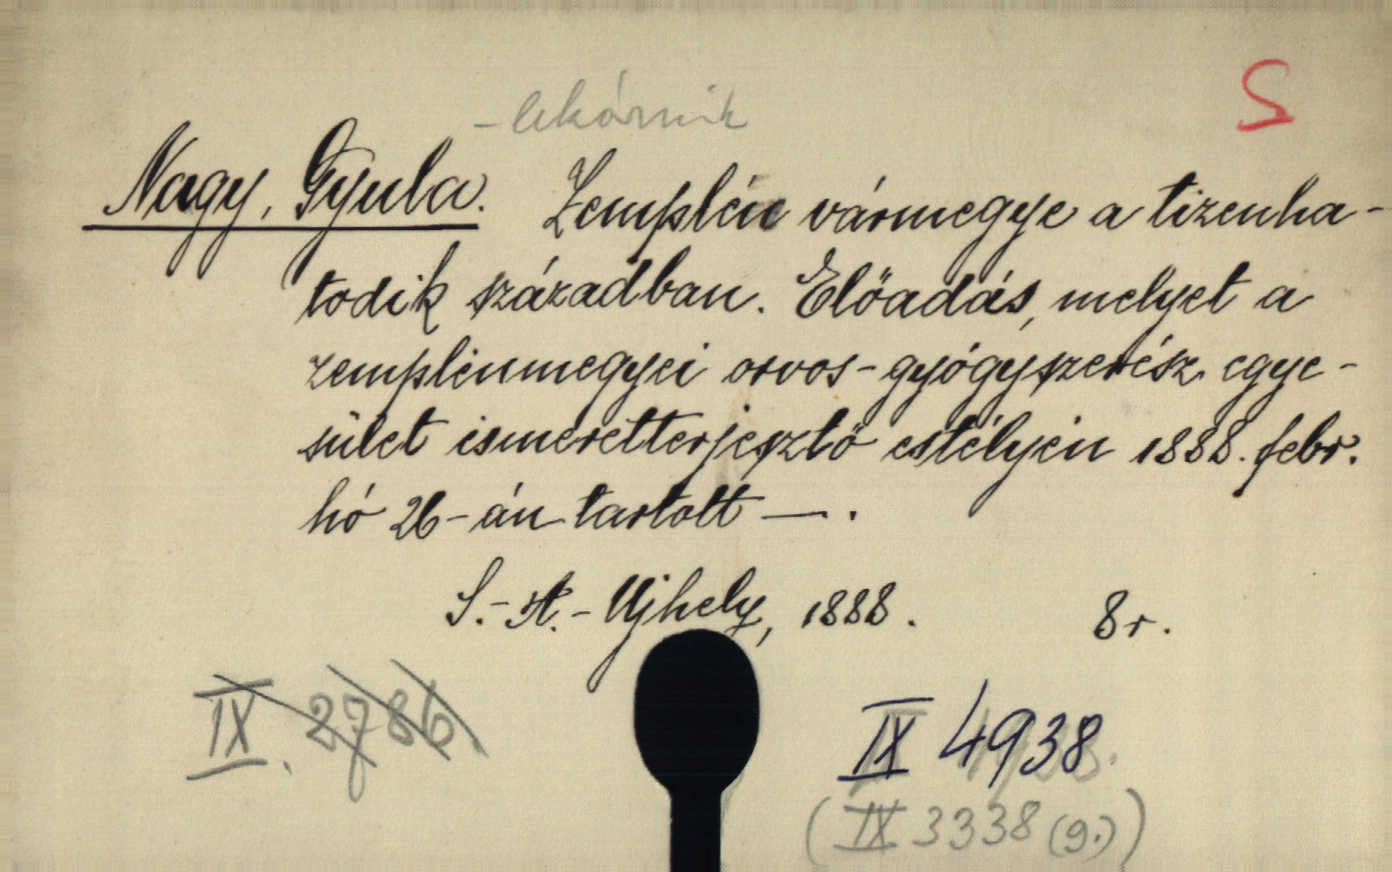 S
- lekárnik
Nagy, Gyula. Zemplén vármegye a tizenha-
todik században. Előadás, melyet a
zemplénmegyei orvos-gyógyszerész egye-
sület ismeretterjesztő estélyén 1888. febr.
hó 26-án tartott —.
S.-A.-Ujhely, 1888. 8r.
IX. 2786
IX 4938
(IX 3338 (9.))